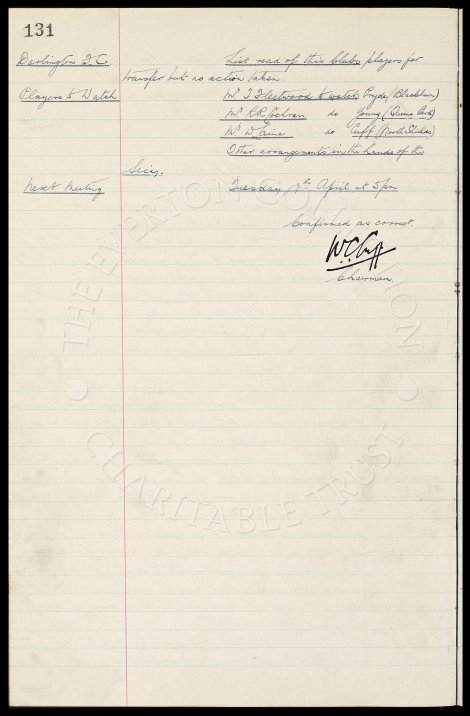 131
Darlington F.C. List read of this Clubs players for
transfer but no action taken.
Players to Watch Mr. T Fleetwood to watch Pryde (Blackburn)
Mr. R.R. do Young (Queens Park)
Mr. W do Cuff (North Shields)
Other arrangements in the hands of the
Secy.
Next Meeting Tuesday April at 5pm
Confirmed as correct.
W.C. Cuff
Chairman.
THE EVERTON COLLECTION
CHARITABLE TRUST